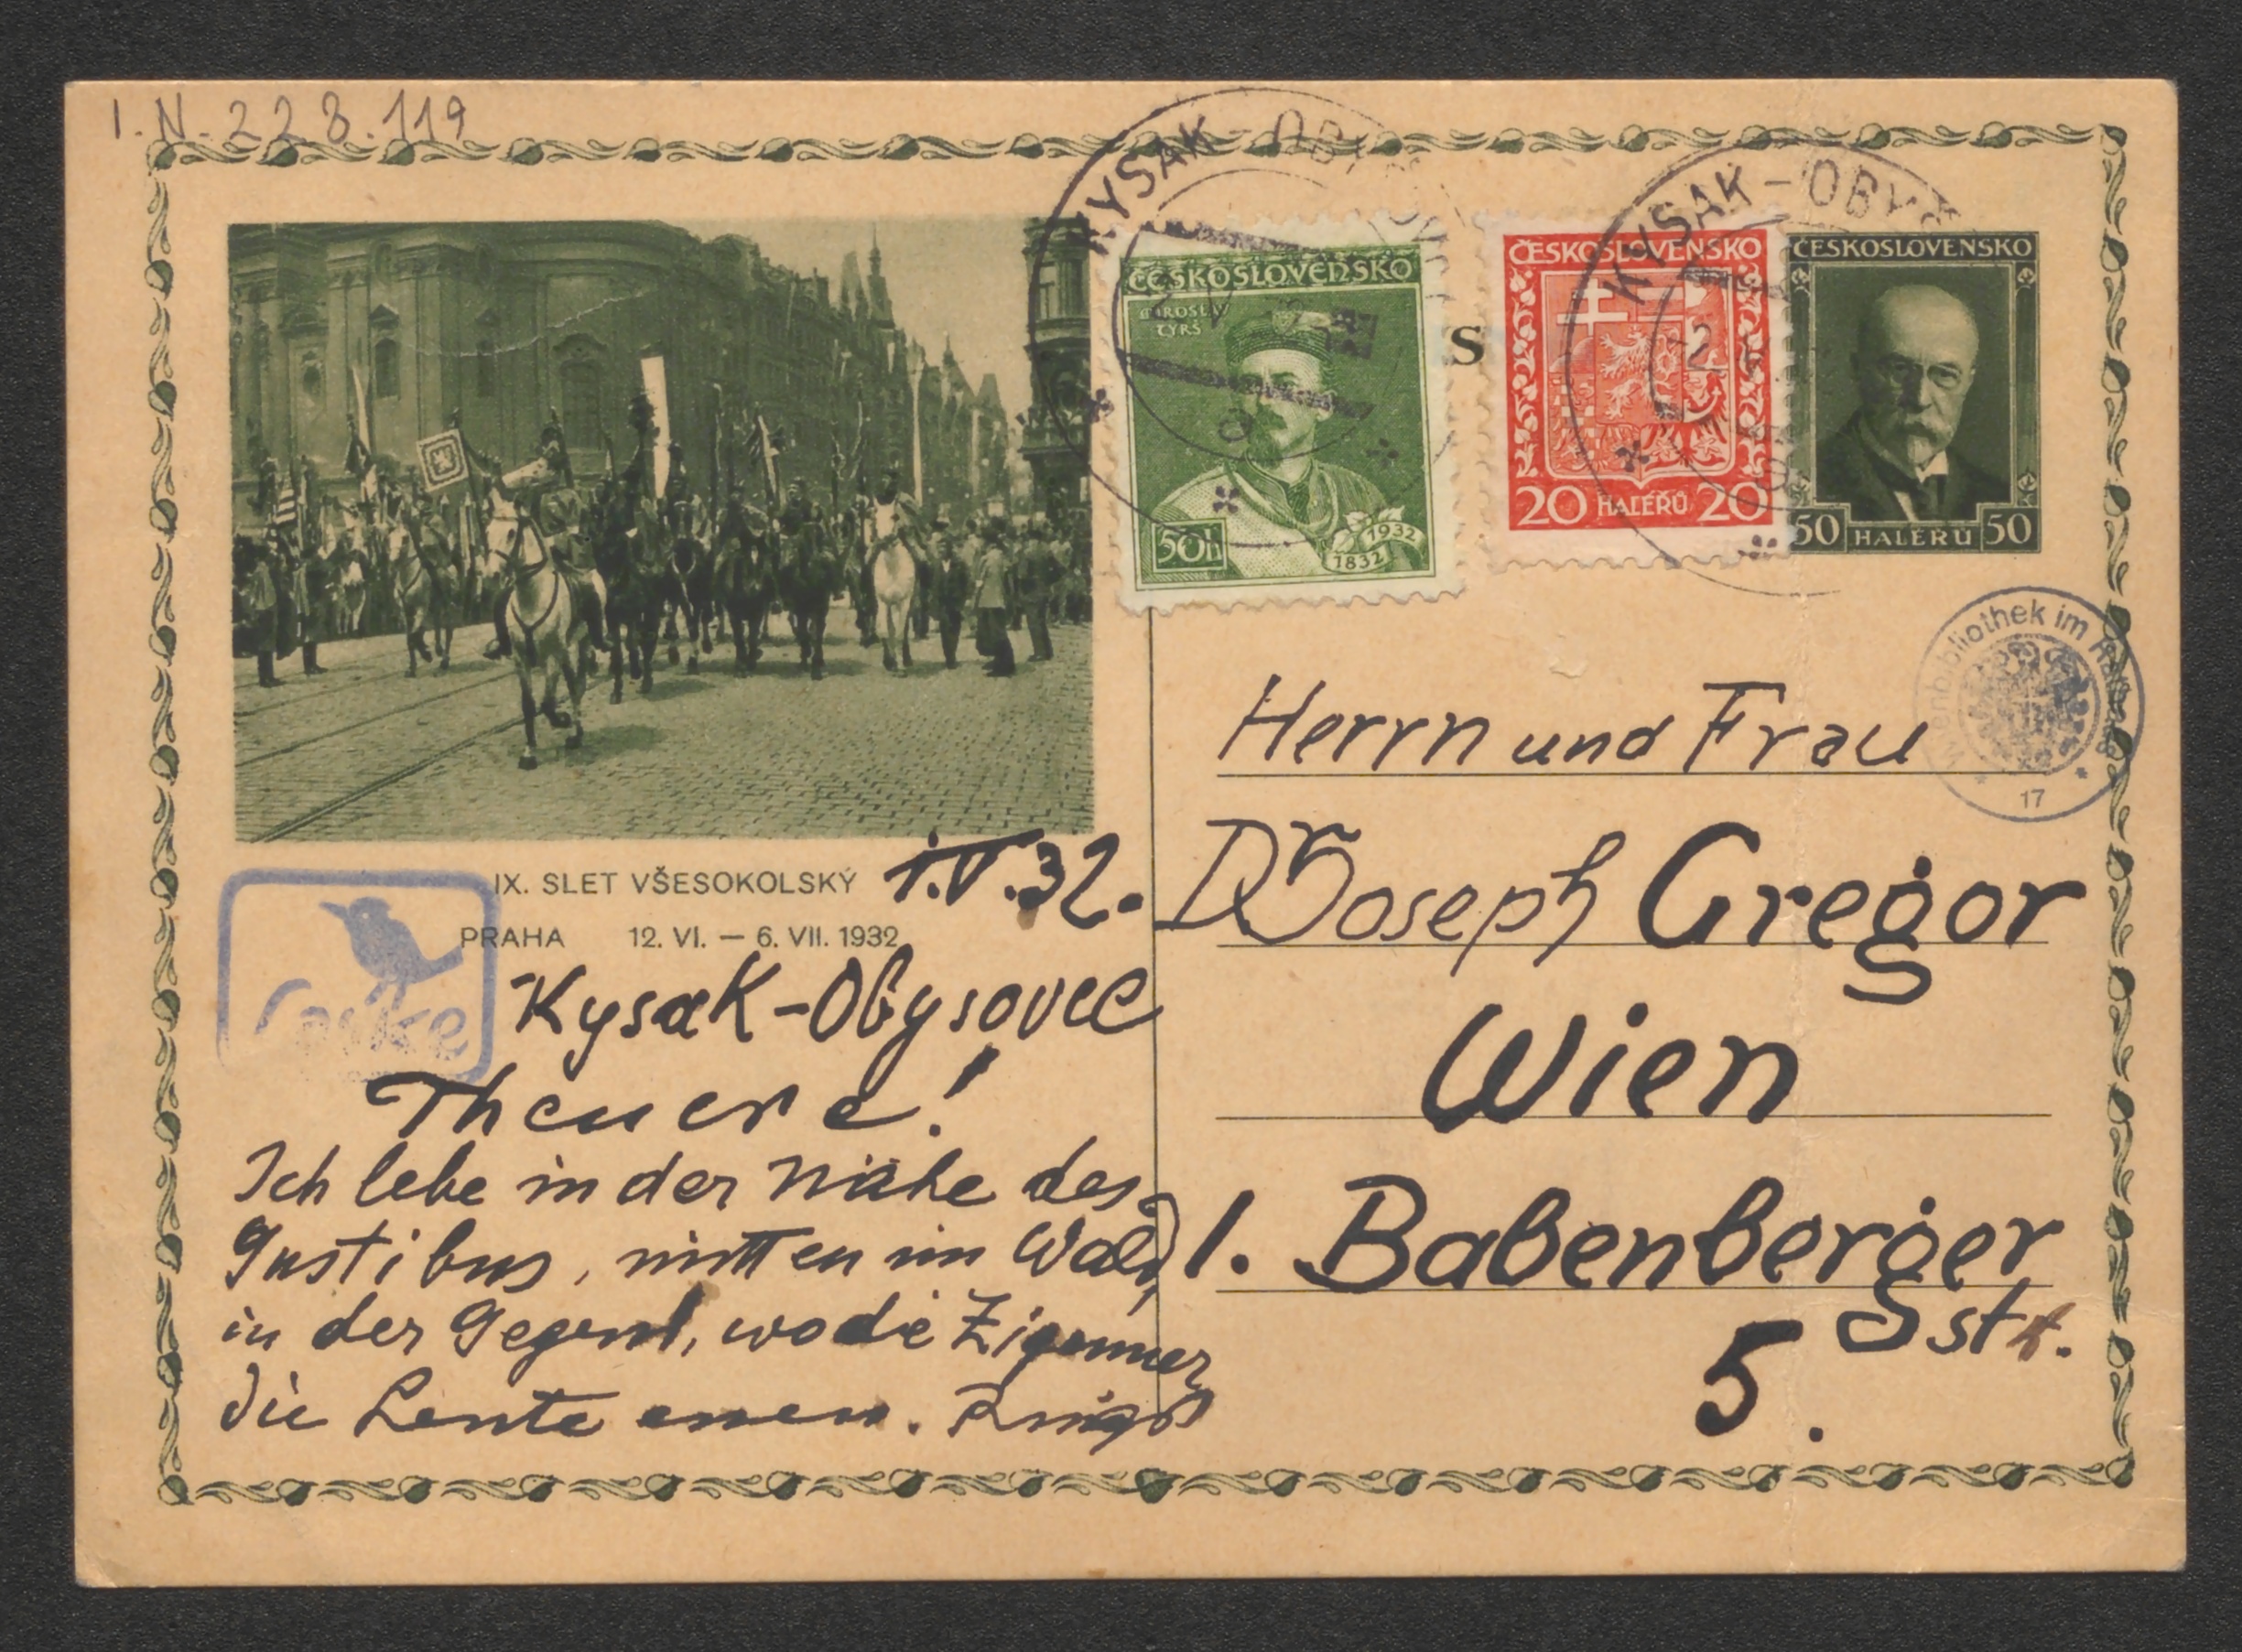 I.N. 228.119
KYSAK - OBYŠ
KYSAK - OBYŠ
ČESKOSLOVENSKO
MIROSLAV
TYRŠ
50h
1932
1832
S
ČESKOSLOVENSKO
20 HALÉŘŮ 20
ČESKOSLOVENSKO
50 HALÉŘŮ 50
Wienbibliothek im Rathaus
17
IX. SLET VŠESOKOLSKÝ
PRAHA 12. VI. — 6. VII. 1932
1.V.32.
Kysak-Obysovce
Theuere!
Ich lebe in der Nähe des
Gustibus, mitten im Wald,
in der Gegend, wo die Zigeuner
die Leute essen.
Herrn und Frau
Dr Joseph Gregor
Wien
1. Babenberger
str.
5.